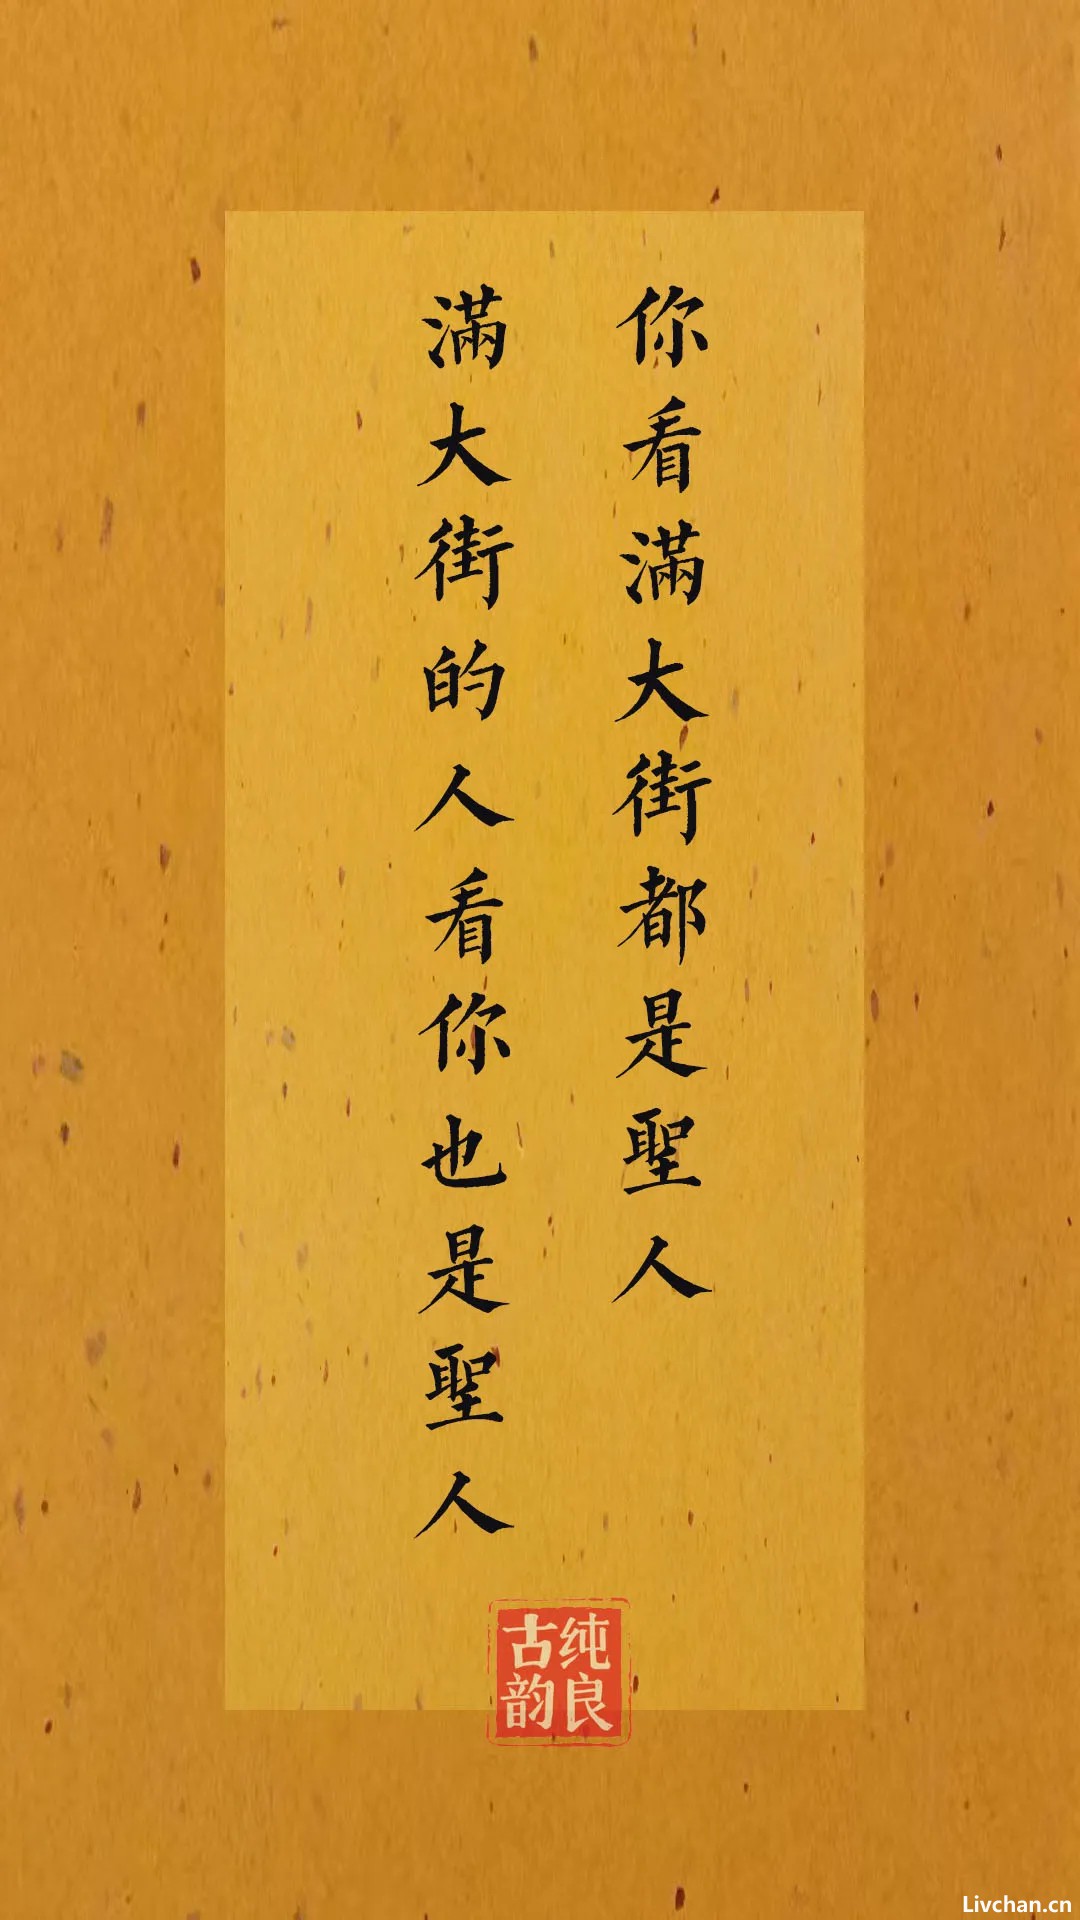 你看滿大街都是聖人
滿大街的人看你也是聖人
纯良
古韵
Livchan.cn